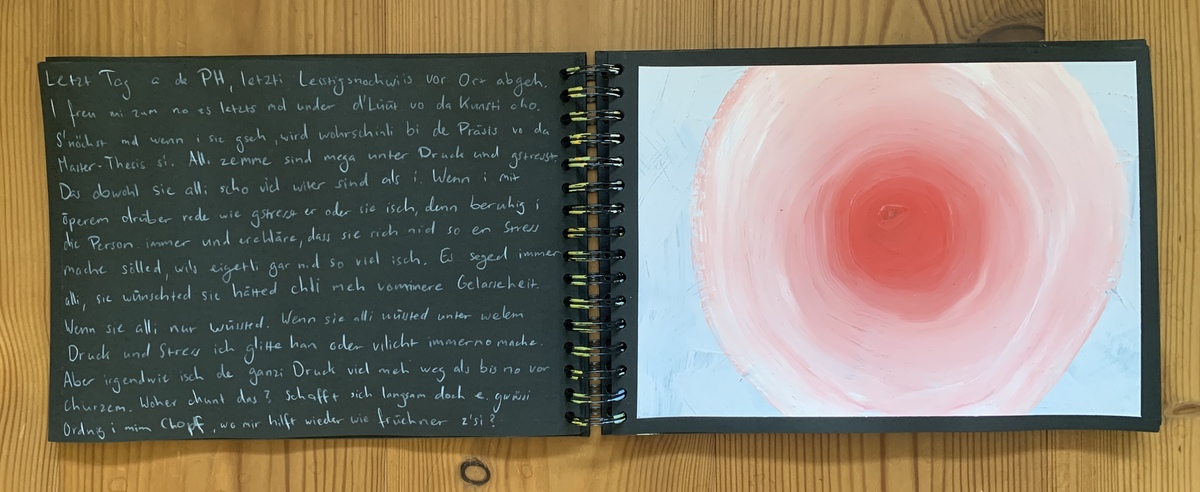 Letzt Tag a de PH, letzti Leistigsnochwiis vor Ort abgeh.
I freu mi zum no es letzts mol under d'Lüüt vo da Kunsti cho.
S'nöchst mol wenn i sie gseh, wird wohrschinli bi de Präsis vo da
Master-Thesis si. Alli zemme sind mega unter Druck und gstresst.
Das obwohl sie alli scho viel witer sind als i. Wenn i mit
öperem drüber rede wie gstresst er oder sie isch, denn beruhig i
die Person immer und erchläre, dass sie sich nid so en Stress
mache sölled, wils eigetli gar nid so viel isch. Es seged immer
alli, sie wünschted sie hätted chli meh vo minere Gelasseheit.
Wenn sie alli nur wüssted. Wenn sie alli wüssted unter welem
Druck und Stress ich glitte han oder vilicht immerno mache.
Aber irgendwie isch de ganzi Druck viel meh weg als bis no vor
churzem. Woher chunt das? Schafft sich langsam doch e gwüssi
Ordnig i mim Chopf, wo mir hilft wieder wie früehner z'si?